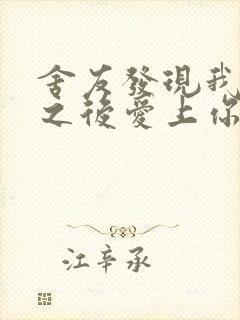 舍友發現我
之後愛上你
江辛承